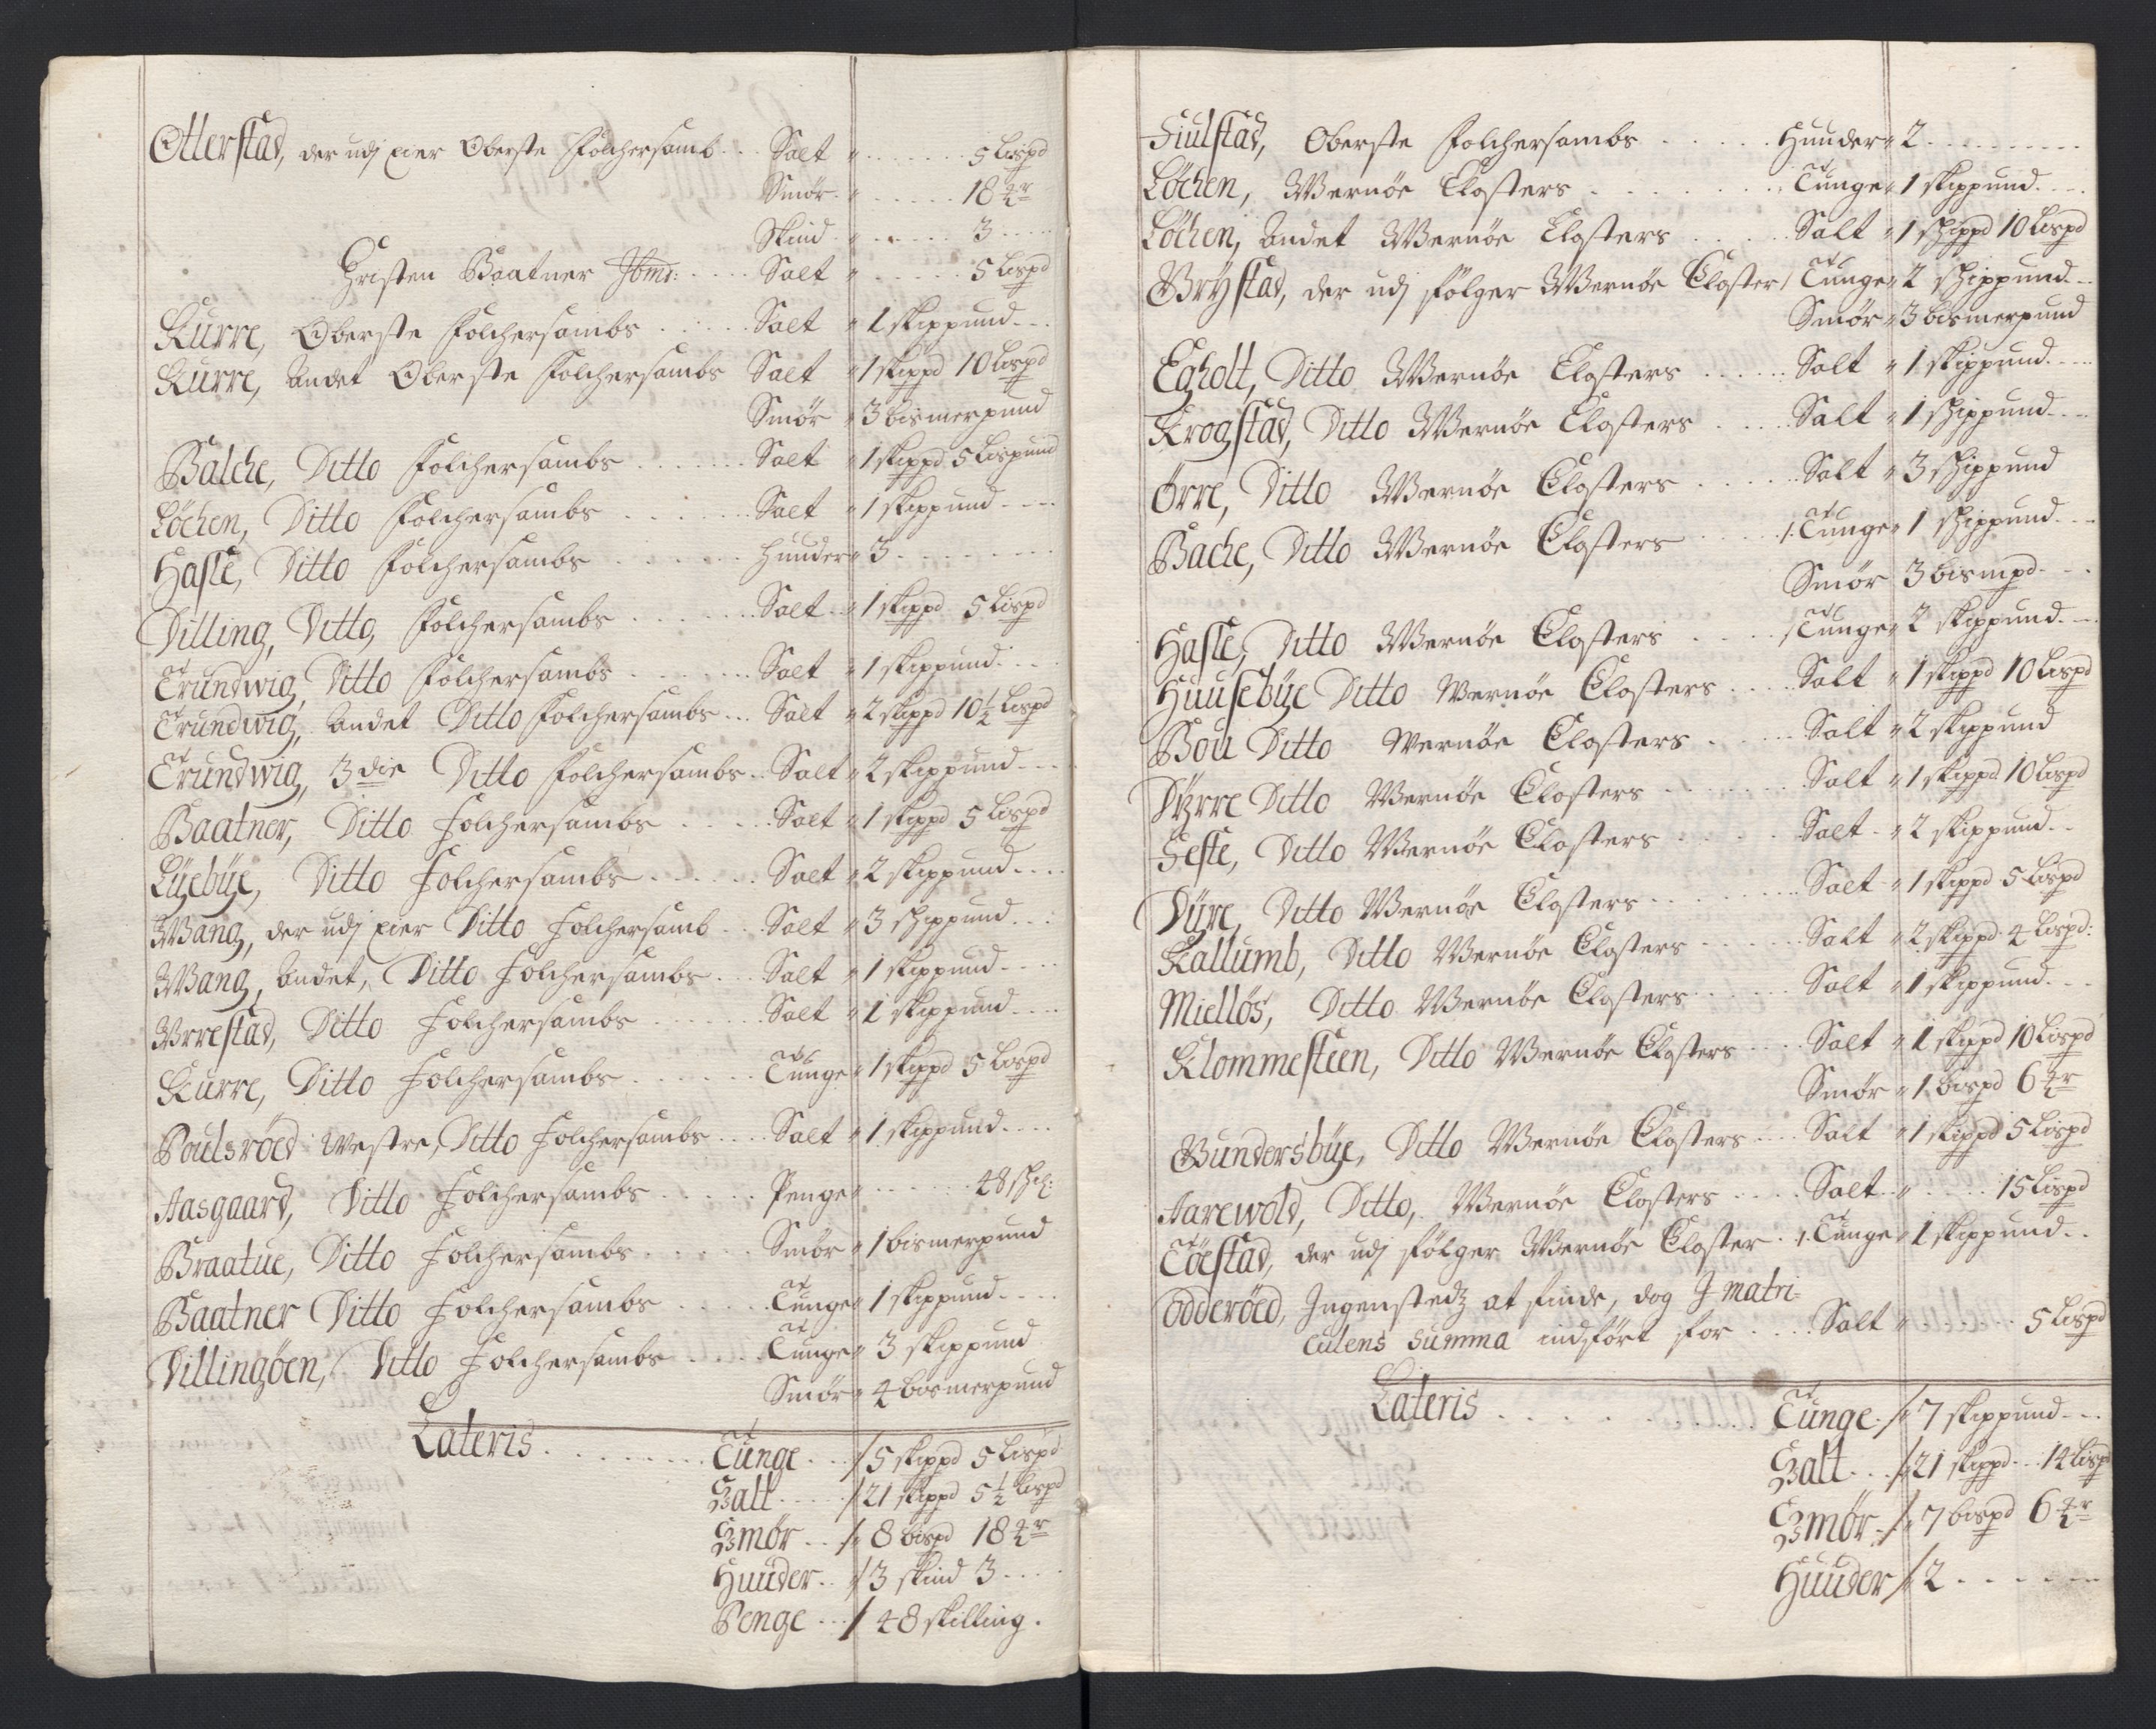 Otterstad, der udj eier Oberste Folchersamb . . . Salt „ . . . . . . . 5 Lispd
Smør . „ . . . . . . 18 ℔r
Skind . „ . . . . . 3 . . . .
Christen Baatner Ibmr: . . . . Salt „ . . . . . . 5 Lispd
Kurre, Oberste Folchersambs . . . . . Salt „ 1 skippund . . .
Kurre, Andet Oberste Folchersambs Salt „ 1 skippd 10 Lispd
Smør „ 3 bismerpund
Balche, Ditto Folchersambs . . . . . . Salt „ 1 skippd 5 Lispund
Løchen, Ditto Folchersambs . . . . . . Salt „ 1 skippund . . . .
Hasle, Ditto Folchersambs . . . . . . huuder „ 3 . . . . . . . .
Dilling, Ditto, Folchersambs . . . . . . Salt . „ 1 skippd 5 Lispd
Trundwig, Ditto Folchersambs . . . . . . Salt „ 1 skippund . . .
Trundwig, Andet Ditto Folchersambs . . . Salt „ 2 skippd 10½ Lispd
Trundwig, 3die Ditto Folchersambs . . Salt „ 2 skippund . . .
Baatner, Ditto Folchersambs . . . . . Salt „ 1 skippd 5 Lispd
Lÿebÿe, Ditto Folchersambs . . . . . . Salt „ 2 skippund . . . .
Wang, der udj eier Ditto Folchersamb . . . Salt „ 3 skippund . . .
Wang, Andet, Ditto Folchersambs . . Salt „ 1 skippund . . . .
Wrrestad, Ditto Folchersambs . . . . . . Salt „ 1 skippund . . . .
Kurre, Ditto Folchersambs . . . . . . Tunge „ 1 skippd 5 Lispd
Poulsrøed westre, Ditto Folchersambs . . . . Salt „ 1 skippund . . . .
Aasgaard, Ditto Folchersambs . . . . . Penge „ . . . . . . 48 skl:
Braatue, Ditto Folchersambs . . . . . Smør „ 1 bismerpund
Baatner Ditto Folchersambs . . . . . Tunge „ 1 skippund . . . .
Dillingøen, Ditto Folchersambs . . . . Tunge „ 3 skippund
Smør „ 4 bismerpund
Lateris . . . . . . . . Tunge . . . /5 skippd 5 Lispd
Salt . . . . /21 skippd 5½ Lispd
Smør . . /„ 8 bispd 18 ℔r
Huuder . . /3 skind 3 . . . .
Penge . . . / 48 skilling .
Fiulstad, Oberste Folchersambs . . . . . Huuder „ 2 . . . . . . . . . .
Løchen, Wernøe Closters . . . . . . . . Tunge „ 1 skippund . . . .
Løchen, Andet Wernøe Closters . . . . . Salt „ 1 skippd 10 Lispd
Brÿstad, der udj følger Wernøe Closter / Tunge „ 2 skippund . . .
Smør „ 3 bismerpund
Egholt, Ditto Wernøe Closters . . . . . Salt „ 1 skippund . . . .
Krogstad, Ditto Wernøe Closters . . . . Salt „ 1 skippund . . . .
Ørre, Ditto Wernøe Closters . . . . . Salt „ 3 skippund
Bache, Ditto Wernøe Closters . . . . /. Tunge „ 1 skippund . . .
Smør 3 bismpd . . .
Hasle, Ditto Wernøe Closters . . . . /Tunge „ 2 skippund . . .
Huusebÿe Ditto Wernøe Closters . . . . Salt „ 1 skippd 10 Lispd
Bou Ditto Wernøe Closters . . . . . Salt „ 2 skippund
Dÿrre Ditto Wernøe Closters . . . . . . . Salt „ 1 skippd 10 Lispd
Feste, Ditto Wernøe Closters . . . . . Salt . „ 2 skippund . .
Dÿre, Ditto Wernøe Closters . . . . . . . Salt „ 1 skippd 5 Lispd
Kallumb, Ditto Wernøe Closters . . . . . . Salt „ 2 skippd 4 Lispd:
Mielløs, Ditto Wernøe Closters . . . . . Salt „ 1 skippund . . .
Klommesteen, Ditto Wernøe Closters . . . . Salt „ 1 skippd 10 Lispd
Smør „ 1 bispd 6 ℔r
Gundersbÿe, Ditto Wernøe Closters . . . Salt „ 1 skippd 5 Lispd
Aarewold, Ditto, Wernøe Closters . . . . Salt . . „ . . . . 15 Lispd
Tøestad, der udj følger Wernøe Closter . /. Tunge „ 1 skippund . .
Odderøed, Ingenstedz at finde, dog J matri=
culens Summa indført for . . . . Salt „ . . . . . . 5 Lispd
Lateris . . . . . . . . . . Tunge . /„ 7 skippund . . .
Salt . . . /21 skippd . . 14 Lispd
Smør . /„ 7 bispd 6 ℔r
Huuder / 2 . . . . . . .